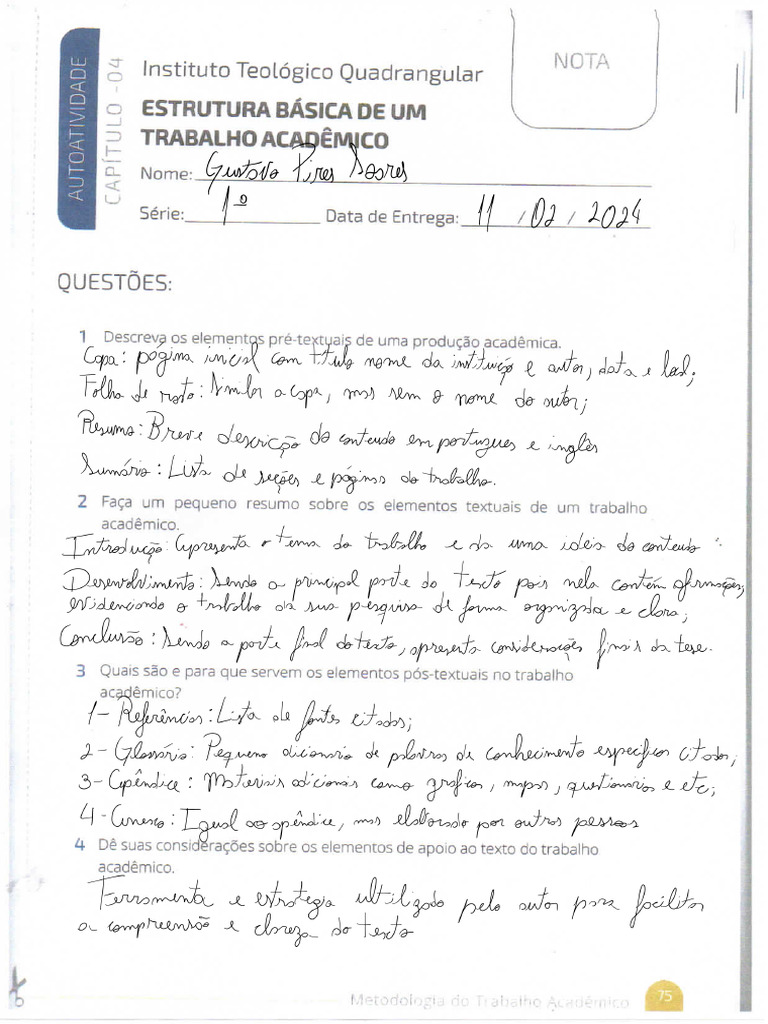 AUTOATIVIDADE
CAPÍTULO - 04
Instituto Teológico Quadrangular
ESTRUTURA BÁSICA DE UM
TRABALHO ACADÊMICO
NOTA
Nome: Gustavo Pires Soares
Série: 1º Data de Entrega: 11 / 02 / 2024
QUESTÕES:
1 Descreva os elementos pré-textuais de uma produção acadêmica.
Capa: página inicial com titulo nome da instituição e autor, data e local;
Folha de rosto: Similar a capa, mas sem o nome do autor;
Resumo: Breve descrição do conteudo em portugues e inglês
Sumário: Lista de seções e páginas do trabalho.
2 Faça um pequeno resumo sobre os elementos textuais de um trabalho
acadêmico.
Introdução: Apresenta o tema do trabalho e da uma ideia do conteudo
Desenvolvimento: Sendo a principal parte do texto pois nela contém afirmações,
evidenciando o trabalho da sua pesquisa de forma organizada e clara;
Conclusão: Sendo a parte final do texto, apresenta considerações finais da tese.
3 Quais são e para que servem os elementos pós-textuais no trabalho
acadêmico?
1 - Referências: Lista de fontes citadas;
2 - Glossário: Pequeno dicionario de palavras de conhecimento especificos citados;
3 - Apêndice: Materiais adicionais como graficos, mapas, questionarios e etc;
4 - Anexo: Igual ao apêndice, mas elaborado por outras pessoas
4 Dê suas considerações sobre os elementos de apoio ao texto do trabalho
acadêmico.
Ferramenta e estrategia ultilizado pelo autor para facilitar
a compreensão e clareza do texto
Metodologia do Trabalho Acadêmico 75